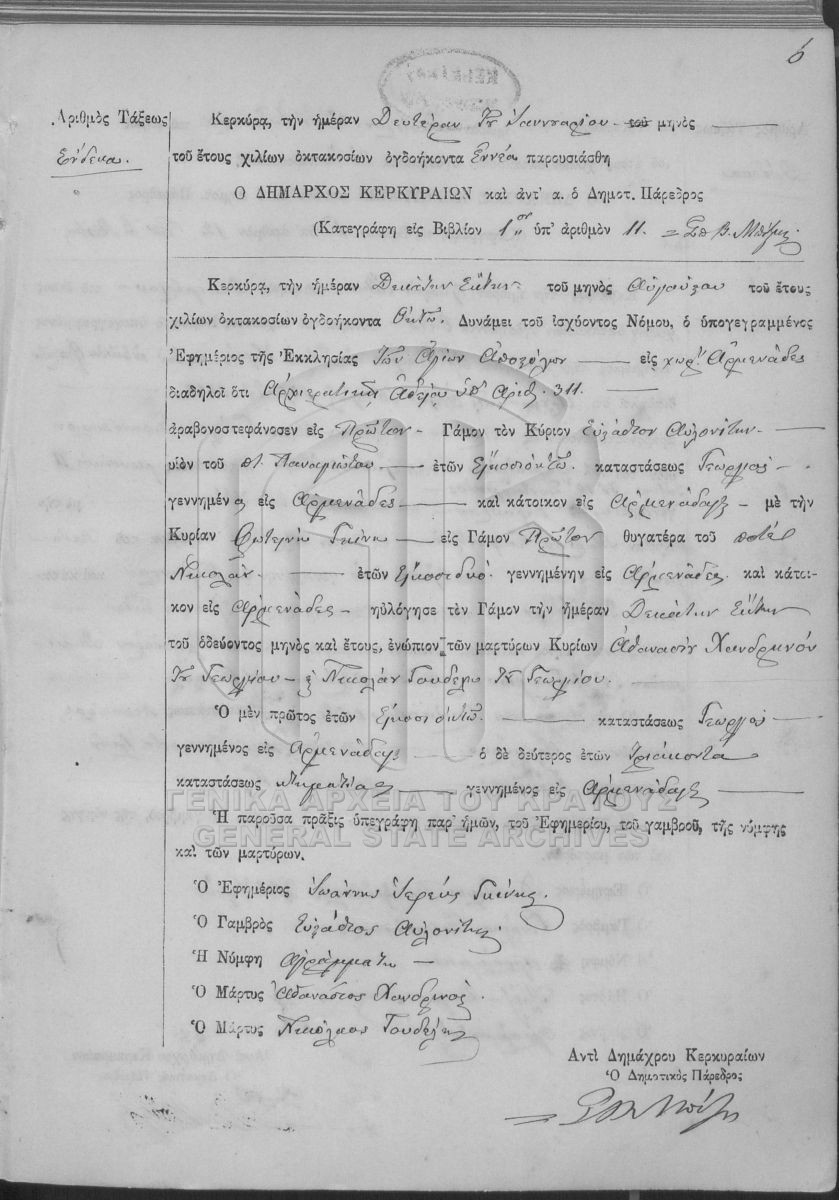 6
Ἀριθμὸς Τάξεως
Ἕνδεκα.
Κερκύρα, τὴν ἡμέραν Δευτέραν Ἰαννουαρίου τοῦ μηνὸς
τοῦ ἔτους χιλίων ὀκτακοσίων ὀγδοήκοντα Ἐννέα παρουσιάσθη
Ο ΔΗΜΑΡΧΟΣ ΚΕΡΚΥΡΑΙΩΝ καὶ ἀντ' α. ὁ Δημοτ. Πάρεδρος
(Κατεγράφη εἰς Βιβλίον 1ον ὑπ' ἀριθμὸν 11.
Κερκύρα, τὴν ἡμέραν Δεκάτην Ἕκτην τοῦ μηνὸς Αὐγούστου τοῦ ἔτους
χιλίων ὀκτακοσίων ὀγδοήκοντα Ὀκτώ. Δυνάμει τοῦ ἰσχύοντος Νόμου, ὁ ὑπογεγραμμένος
Ἐφημέριος τῆς Ἐκκλησίας Τῶν Ἁγίων Ἀποστόλων εἰς χωρ. Ἀρμενάδες
διαδηλοῖ ὅτι Ἀρχιερατικῇ Ἀδείᾳ ὑπ' Ἀριθ. 311.
ἀραβονοστεφάνοσεν εἰς Πρῶτον Γάμον τὸν Κύριον Εὐστάθιον Αὐλονίτην
υἱὸν τοῦ π. Παναγιώτου ἐτῶν Εἰκοσιοκτώ. καταστάσεως Γεωργὸς
γεννημένο εἰς Ἀρμενάδες καὶ κάτοικον εἰς Ἀρμενάδας μὲ τὴν
Κυρίαν Φωτεινὴ Γκίνη εἰς Γάμον Πρῶτον θυγατέρα τοῦ ποτέ
Νικολάη ἐτῶν Εἰκοσιδυό. γεννημένην εἰς Ἀρμενάδες. καὶ κάτοι-
κον εἰς Ἀρμενάδες ηὐλόγησε τὲν Γάμον τὴν ἡμέραν Δεκάτην Ἕκτην
τοῦ ὁδεύοντος μηνὸς καὶ ἔτους, ἐνώπιον τῶν μαρτύρων Κυρίων Ἀθανασίν Χανδρινόν
Γεωργίου Νικολάν Τουδελη Γεωργίου.
Ὁ μὲν πρῶτος ἐτῶν Εἰκοσι οκτώ. καταστάσεως Γεωργός
γεννημένος εἰς Ἀρμενάδας ὁ δὲ δεύτερος ἐτῶν Τριάκοντα
καταστάσεως κτηματίας γεννημένος εἰς Ἀρμενάδας
ΓΕΝΙΚΑ ΑΡΧΕΙΑ ΤΟΥ ΚΡΑΤΟΥΣ
GENERAL STATE ARCHIVES
Ἡ παροῦσα πρᾶξις ὑπεγράφη παρ' ἡμῶν, τοῦ Ἐφημερίου, τοῦ γαμβροῦ, τῆς νύμφης
καὶ τῶν μαρτύρων.
Ὁ Ἐφημέριος Ἰωάννης Ἱερεύς Γκίνης.
Ὁ Γαμβρὸς Εὐστάθιος Αὐλονίτης.
Ἡ Νύμφη Ἀγράμματη
Ὁ Μάρτυς Ἀθανάσιος Χανδρινός.
Ὁ Μάρτυς Νικόλαος Τουδέλης
Ἀντὶ Δημάχρου Κερκυραίων
Ὁ Δημοτικὸς Πάρεδρος